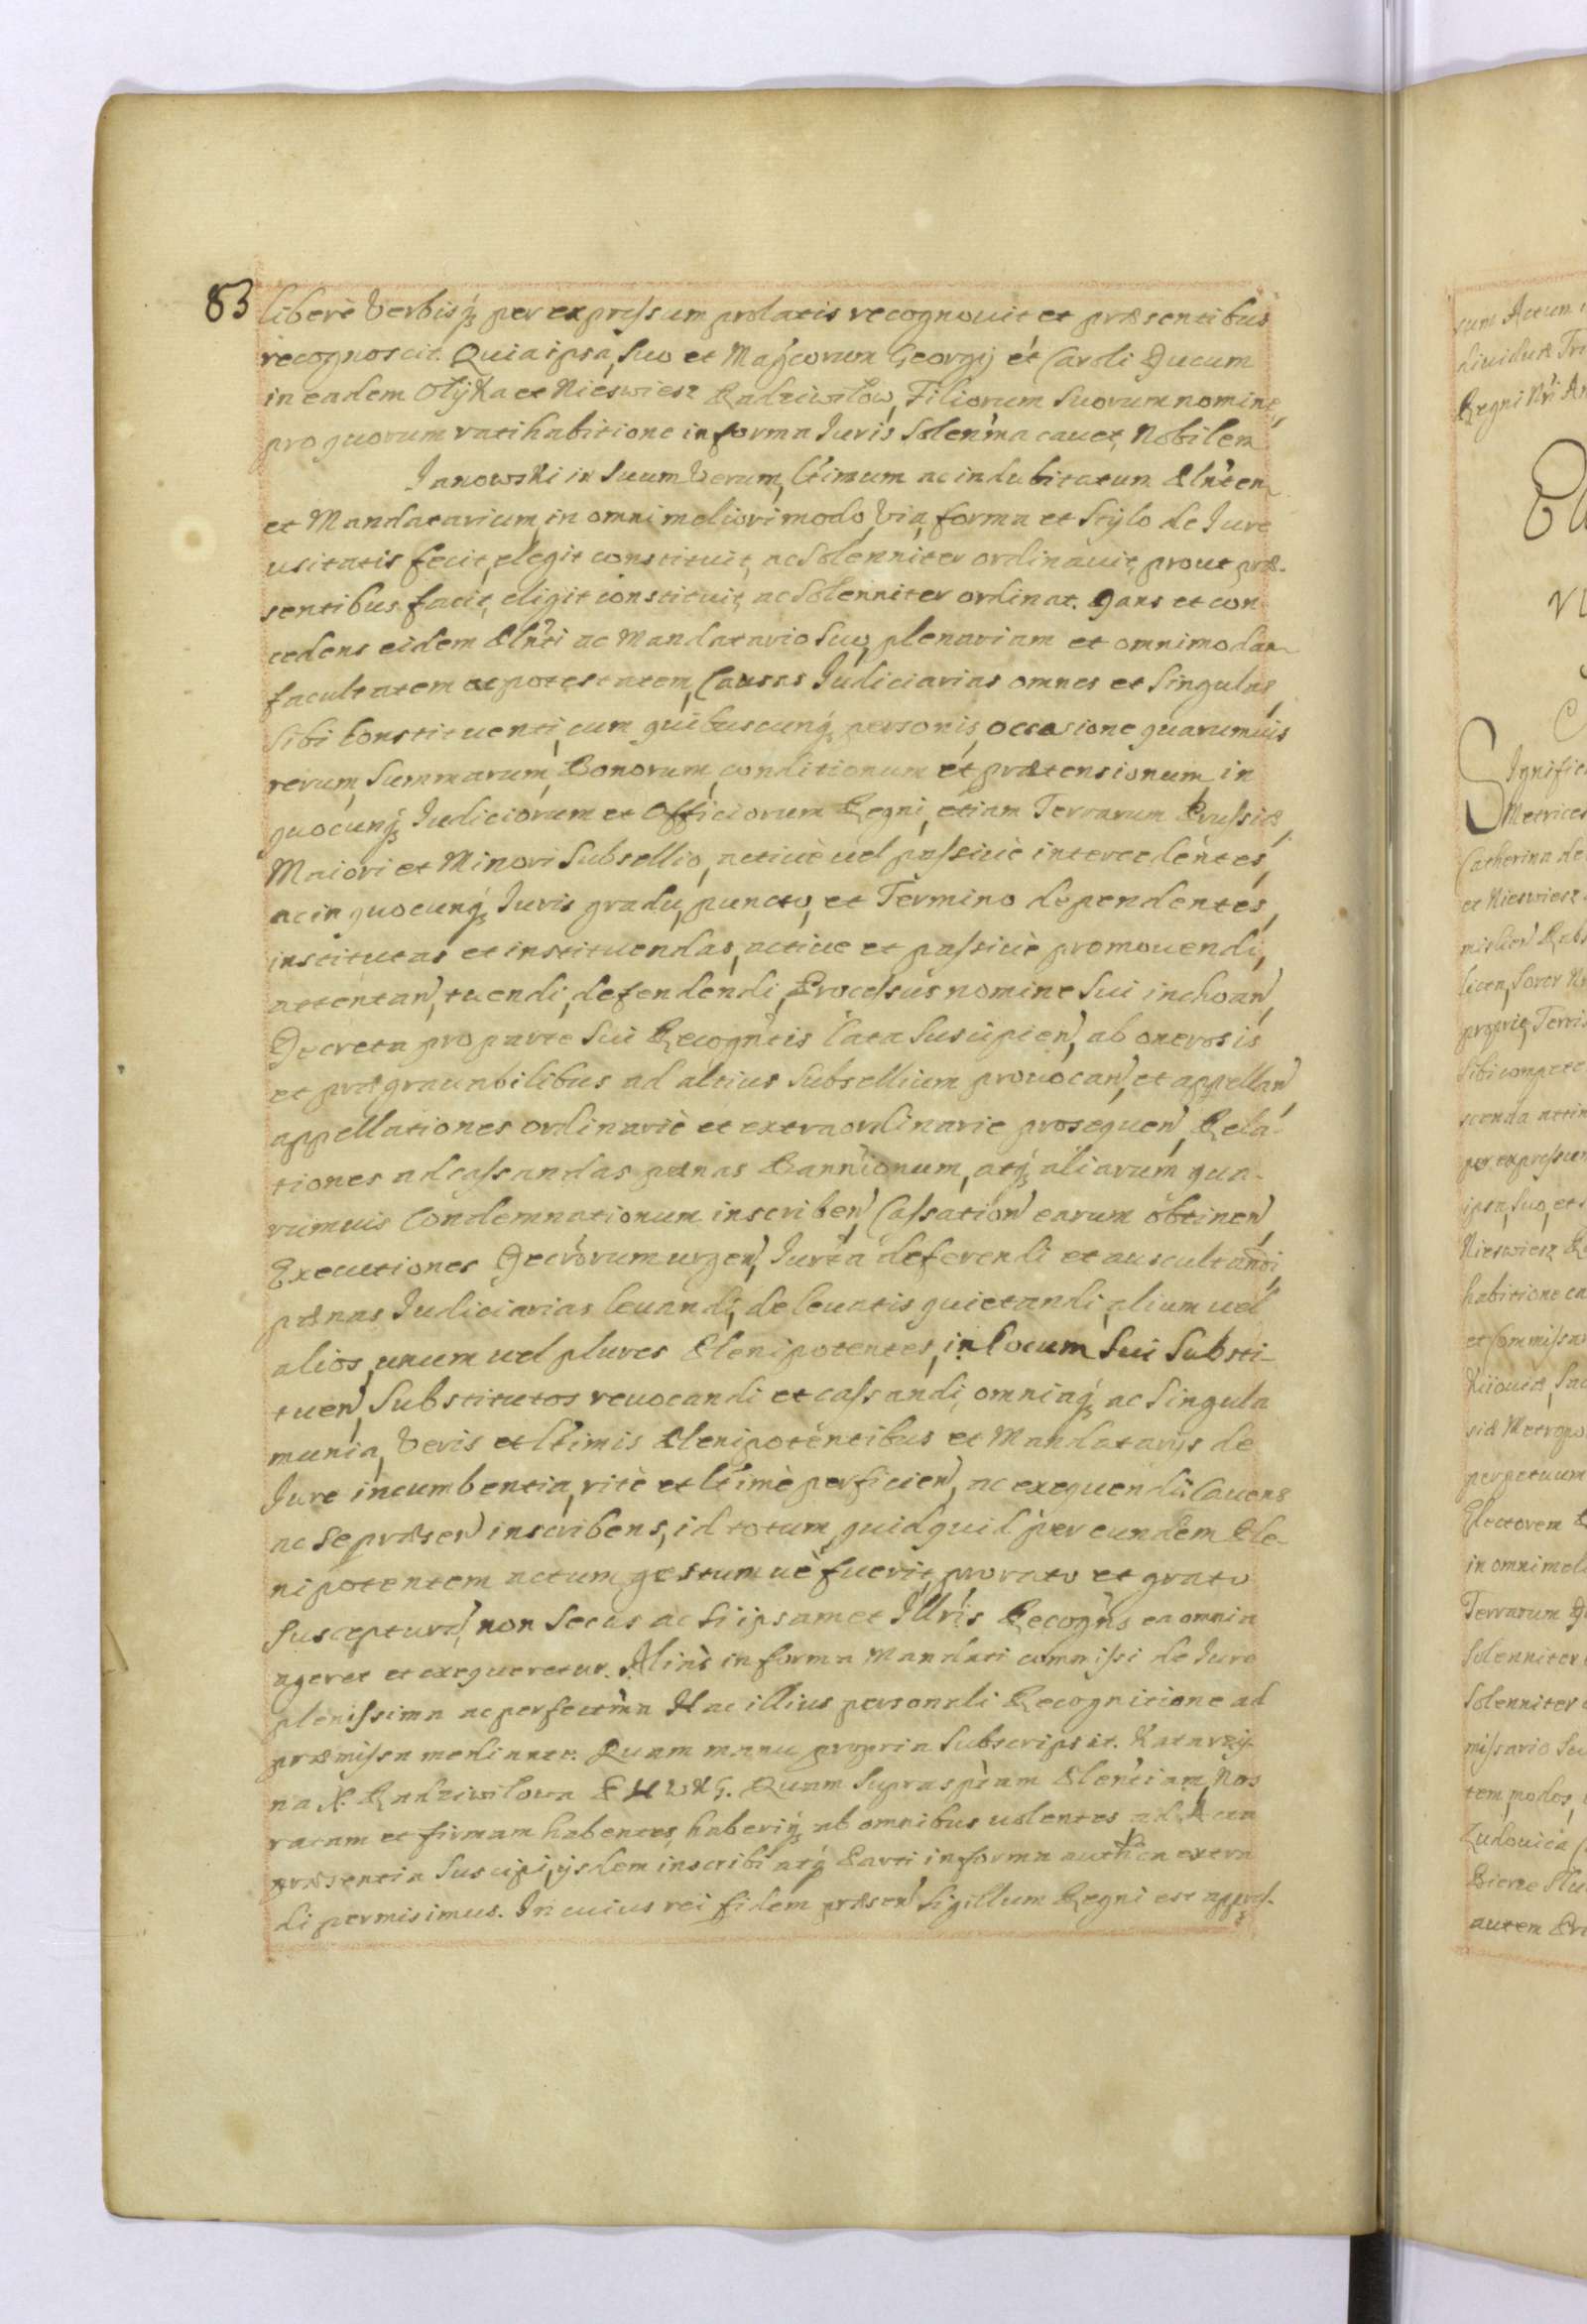 83
liberè Verbisq́ per expressum prolatis recognouit et præsentibus
recognoscit. Quia ipsa, Suo et Mag̃corum Georgij et Caroli Ducum
in eadem Ołÿka et Nieswiesz Radziwiłłow, Filiorum Suorum nomine,
pro quorum ratihabitione in forma Iuris Solen̄ma cauet, Nobilem
Janowski in Suum Verum, Lt̃imum ac indubitatum Pln̄ten
et Mandatarium, in omni meliori modo, Via, forma et Stylo de Iure
usitatis fecit, elegit constituit, ac Solenniter ordinauit, prout præ-
sentibus facit, eligit constituit, ac Solenniter ordinat. Dans et con-
cedens eidem Pln̄ti ac Mandatario Suo, plenariam et omnimodam
facultatem ac potestatem, Causas Iudiciarias omnes et Singulas,
Sibi Constituenti, cum quibuscunq́ personis, occasione quarumuis
rerum, Summarum, Bonorum, conditionum et prætensionum, in
quocunq́ Iudiciorum et Officiorum Regni, etiam Terrarum Prussiæ,
Maiori et Minori Subsellio, actiuè uel passiuè intercedentes,
ac in quocunq́ Iuris gradu, puncto, et Termino dependentes,
institutas et instituendas, actiue et passiuè promouendi,
attentan̄, tuendi, defendendi, Processus nomine Sui inchoan̄,
Decreta pro parte Sui Recogn̄tis lata Suscipien̄, ab onerosis
et prægrauabilibus ad altius Subsellium prouocan̄, et appellan̄,
appellationes ordinariè et extraordinarie prosequen̄, Rela-
tiones ad cassandas pœnas Bannionum, atq́ aliarum qua-
rumuis Condemnationum inscriben̄, Cassation̄ earum obtinen̄,
Executiones Decrõrum urgen̄, Iurta deferendi et auscultandi,
pœnas Iudiciarias leuandi, de leuatis quietandi, alium uel
alios, unum uel plures Plenipotentes, in locum Sui Substi-
tuen̄, Substitutos reuocandi et cassandi, omniaq́ ac Singula
munia, Veris et Lt̃imis Plenipotentibus et Mandatarijs de
Iure incumbentia, ritè et Lt̃imè perficien̄, ac exequendi. Cauens
ac Se præsen̄ inscribens, id totum, quidquid per eundem Ple-
nipotentem actum gestum uè fuerit, pro rato et grato
Susceptura, non Secus ac Si ipsamet Illr̃is Recogn̄s ea omnia
ageret et exequeretur. Aliàs in forma Mandati commissi de Iure
plenissima ac perfectm̃a Hac illius personali Recognitione ad
præmissa mediante. Quam manu propria Subscripsit. Katarzy-
na X. Radziwiłowa P H W X L. Quam Supraspt̃am Plen̄tiam, Nos
ratam et firmam habentes, haberiq́ ab omnibus uolentes, ad Acta
præsentia Suscipi, ijsdem inscribi atq́ Parti in forma auth̃ca extra
di permisimus. In cuius rei fidem præsen̄ Sigillum Regni est appres.